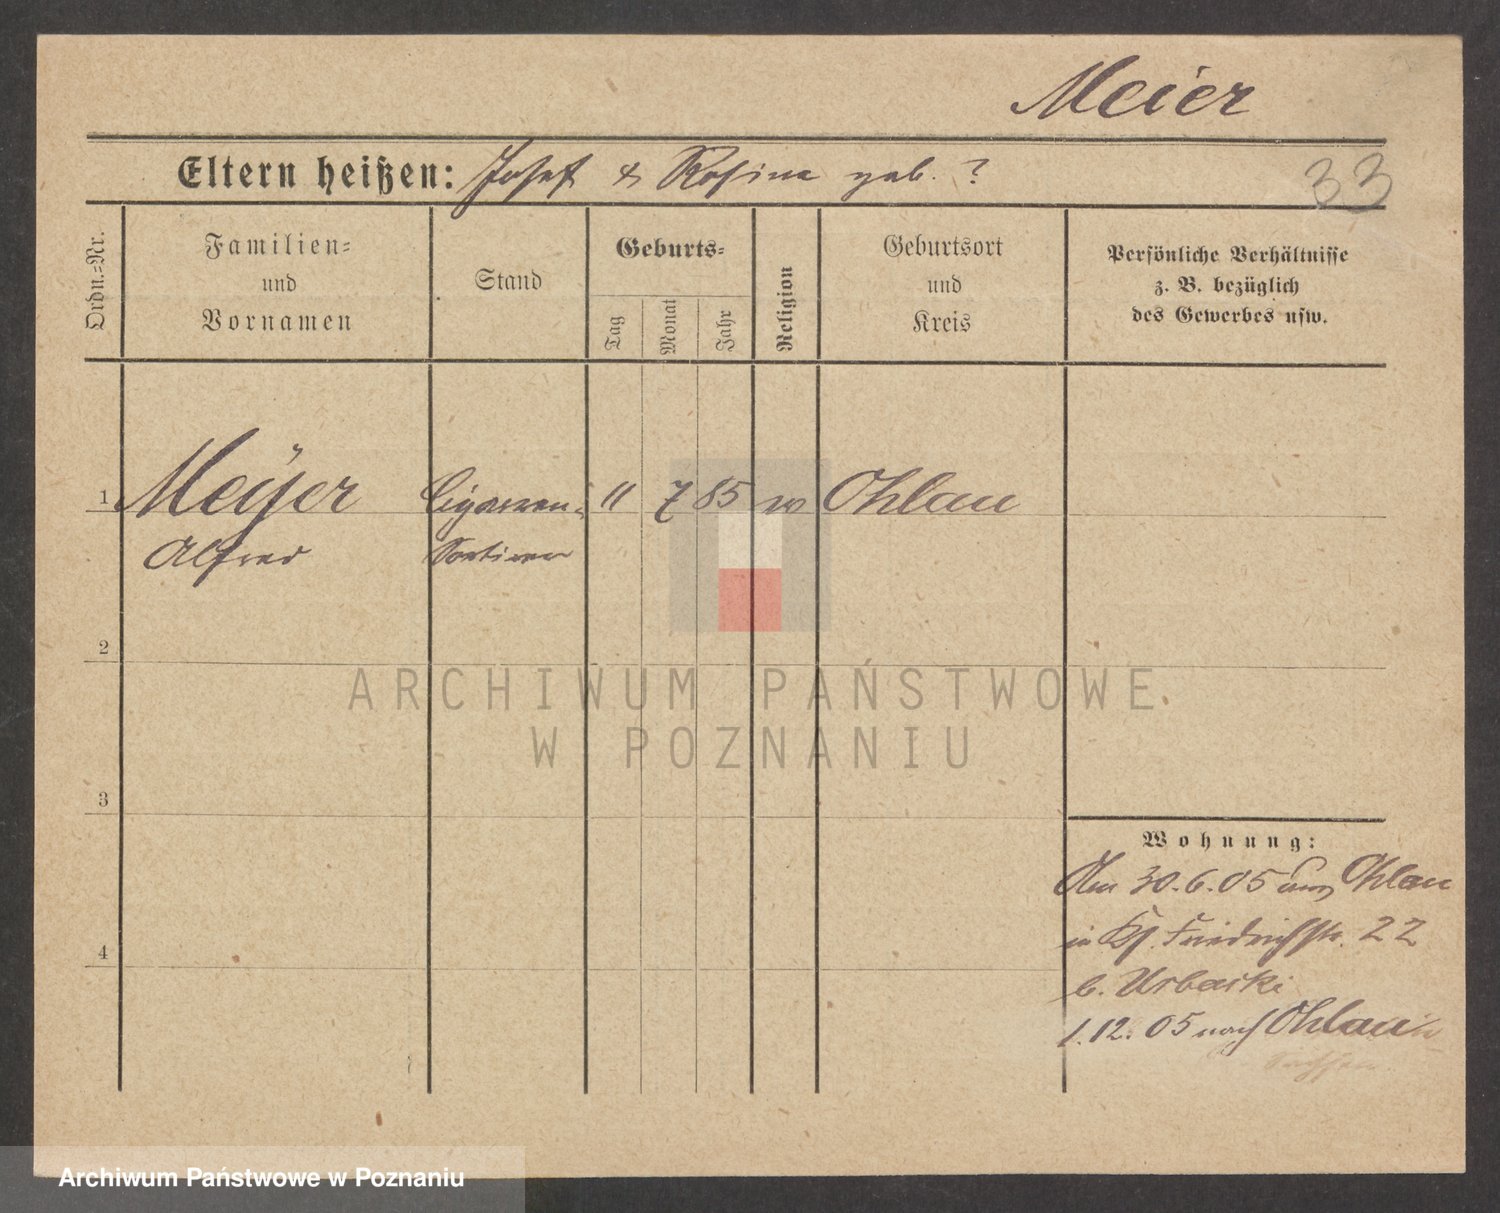 Meier
Eltern heißen: Josef & Rosina geb. ?
33
Ordn.=Nr.
Familien=
und
Vornamen
Stand
Geburts=
Tag
Monat
Jahr
Religion
Geburtsort
und
Kreis
Persönliche Verhältnisse
z. B. bezüglich
des Gewerbes usw.
1 Meÿer Cigarren= 11 7 85 Ohlau
Alfred Sortierer
2
ARCHIWUM PAŃSTWOWE
W POZNANIU
3
Wohnung:
Am 30.6.05 aus Ohlau
in Friedrichstr. 22
b. Urbarki
4
1.12.05 nach Ohlau
Archiwum Państwowe w Poznaniu